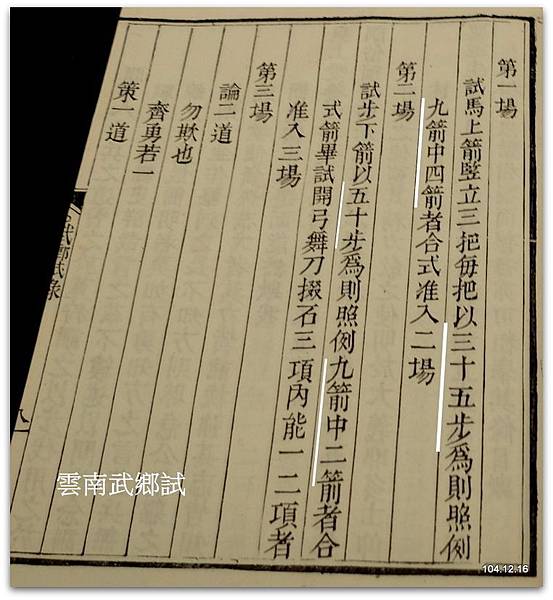 第一場
試馬上箭竪立三把每把以三十五步為則照例
九箭中四箭者合式准入二場
第二場
試步下箭以五十步為則照例九箭中二箭者合
式箭畢試開弓舞刀掇石三項內能一二項者
准入三場
第三場
論二道
勿欺也
齊勇若一
策一道
武鄉試錄
八
雲南武鄉試
104.12.16